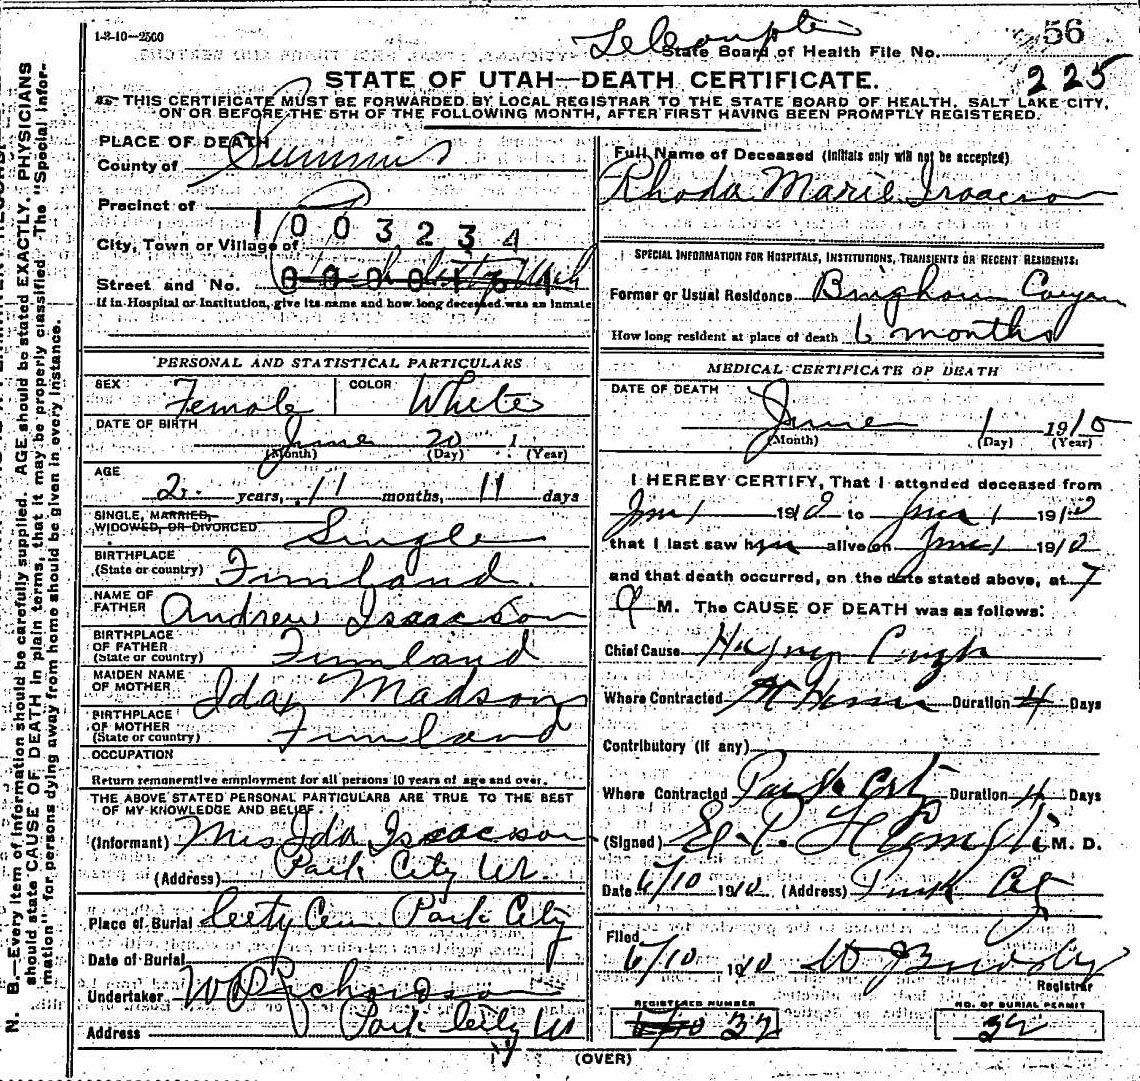 1-3-10-2500
State Board of Health File No. 56
225
STATE OF UTAH—DEATH CERTIFICATE.
THIS CERTIFICATE MUST BE FORWARDED BY LOCAL REGISTRAR TO THE STATE BOARD OF HEALTH, SALT LAKE CITY,
ON OR BEFORE THE 5TH OF THE FOLLOWING MONTH, AFTER FIRST HAVING BEEN PROMPTLY REGISTERED.
PLACE OF DEATH
County of Summit
Precinct of
1003234
City, Town or Village of
Street and No.
If in Hospital or Institution, give its name and how long deceased was an inmate
PERSONAL AND STATISTICAL PARTICULARS
SEX Female COLOR White
DATE OF BIRTH
June 20
(Month) (Day) (Year)
AGE
2 years, 11 months, 11 days
SINGLE, MARRIED,
WIDOWED, OR DIVORCED Single
BIRTHPLACE
(State or country) Finland
NAME OF
FATHER Andrew Isaacson
BIRTHPLACE
OF FATHER
(State or country) Finland
MAIDEN NAME
OF MOTHER Ida Madson
BIRTHPLACE
OF MOTHER
(State or country) Finland
OCCUPATION
Return remunerative employment for all persons 10 years of age and over.
THE ABOVE STATED PERSONAL PARTICULARS ARE TRUE TO THE BEST
OF MY KNOWLEDGE AND BELIEF
(Informant) Mrs Ida Isaacson
(Address) Park City Ut.
Place of Burial City Cem Park City
Date of Burial
Undertaker W D Richardson
Address Park City Ut
Full Name of Deceased (Initials only will not be accepted)
Rhoda Marie Isaacson
SPECIAL INFORMATION FOR HOSPITALS, INSTITUTIONS, TRANSIENTS OR RECENT RESIDENTS:
Former or Usual Residence Bingham Canyon
How long resident at place of death 6 months
MEDICAL CERTIFICATE OF DEATH
DATE OF DEATH
June 1 1910
(Month) (Day) (Year)
I HEREBY CERTIFY, That I attended deceased from
June 1 1910 to June 1 1910
that I last saw her alive on June 1 1910
and that death occurred, on the date stated above, at 7
M. The CAUSE OF DEATH was as follows:
Chief Cause
Where Contracted At Home Duration 4 Days
Contributory (if any)
Where Contracted Park City Duration 4 Days
(Signed) M. D.
Date 6/10 1910 (Address) Park City
Filed
6/10 1910
Registrar
REGISTERED NUMBER
32
NO. OF BURIAL PERMIT
32
(OVER)
N. B.—Every item of information should be carefully supplied. AGE should be stated EXACTLY. PHYSICIANS
should state CAUSE OF DEATH in plain terms, that it may be properly classified. The "Special Infor-
mation" for persons dying away from home should be given in every instance.